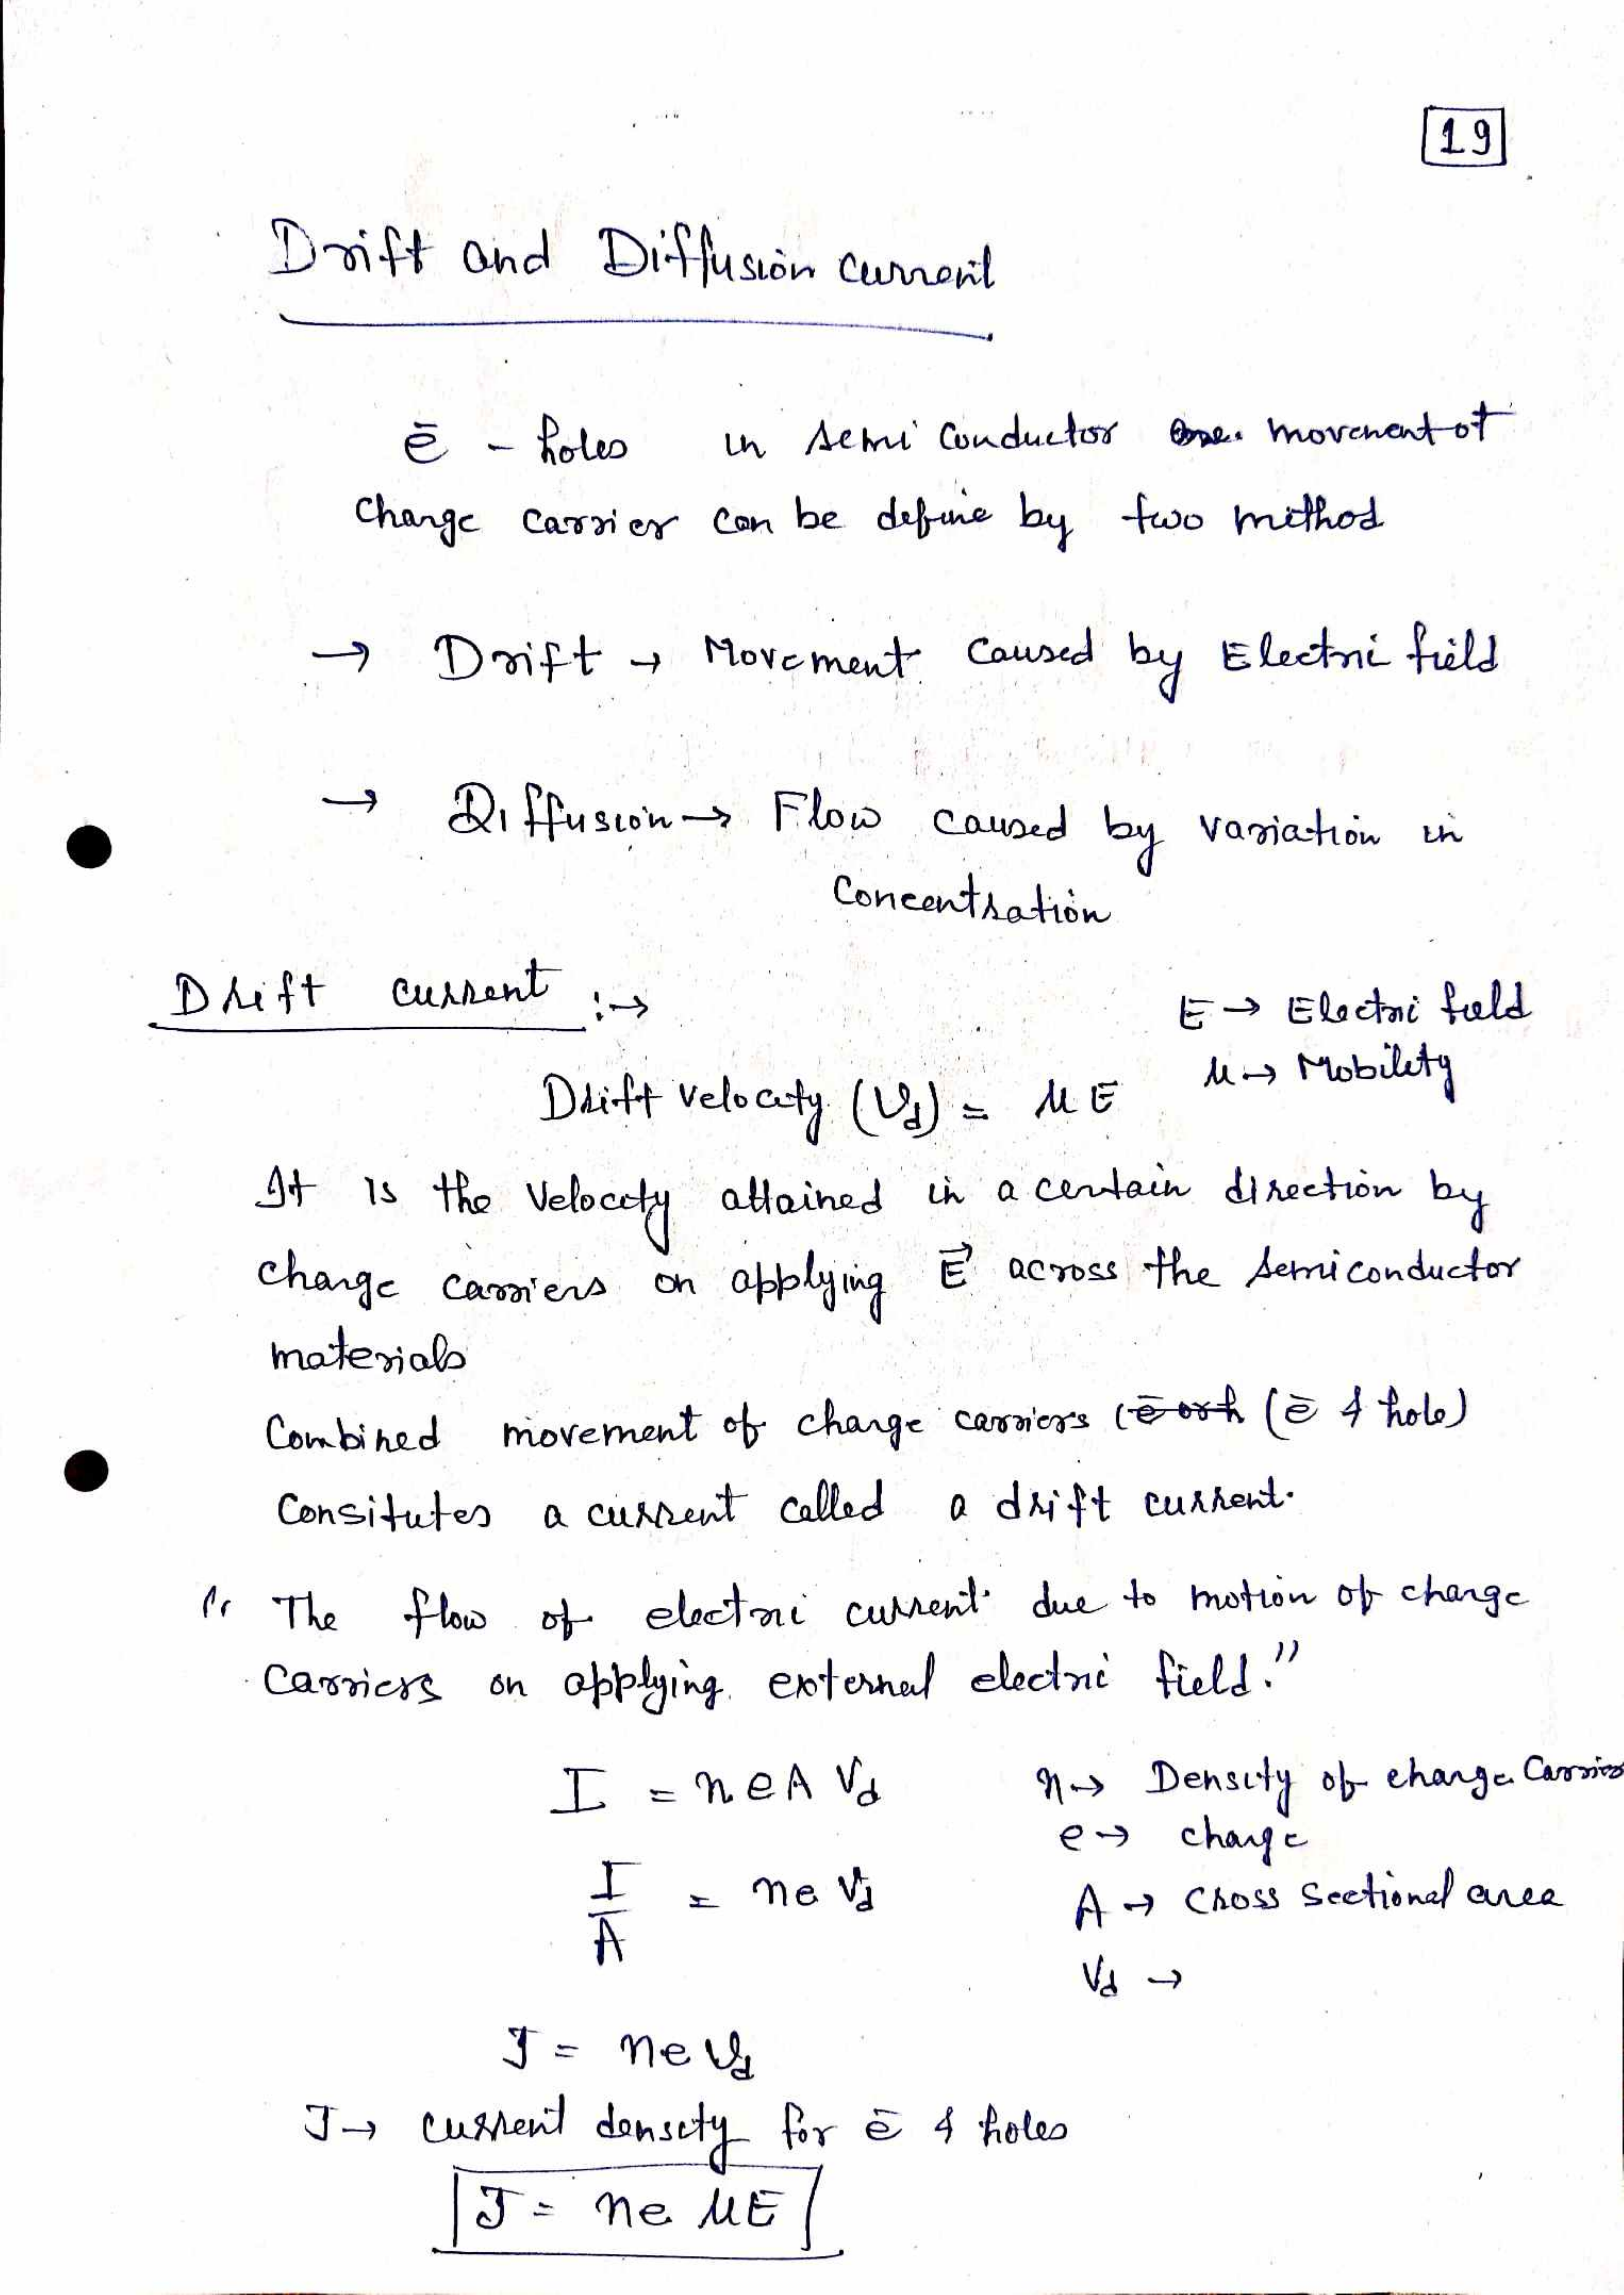 19
Drift and Diffusion current
ē - holes in semi conductor movement of
charge carrier can be define by two method
→ Drift → Movement caused by Electri field
→ Diffusion → Flow caused by variation in
Concentration
Drift current :→
E → Electri field
Drift velocity (Vd) = μE
μ → Mobility
It is the velocity attained in a certain direction by
charge carriers on applying E⃗ across the semiconductor
materials
Combined movement of charge carriers (ē & hole)
Consitutes a current called a drift current.
" The flow of electri current due to motion of charge
Carriers on applying external electri field."
I = neA Vd
n → Density of charge Carrier
e → charge
I/A = ne Vd
A → Cross Sectional area
Vd →
J = ne Vd
J → current density for ē & holes
J = ne μE